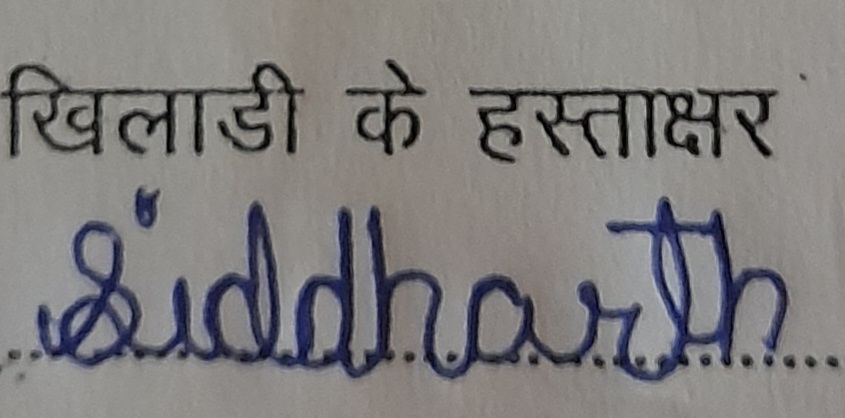 खिलाडी के हस्ताक्षर
Siddharth